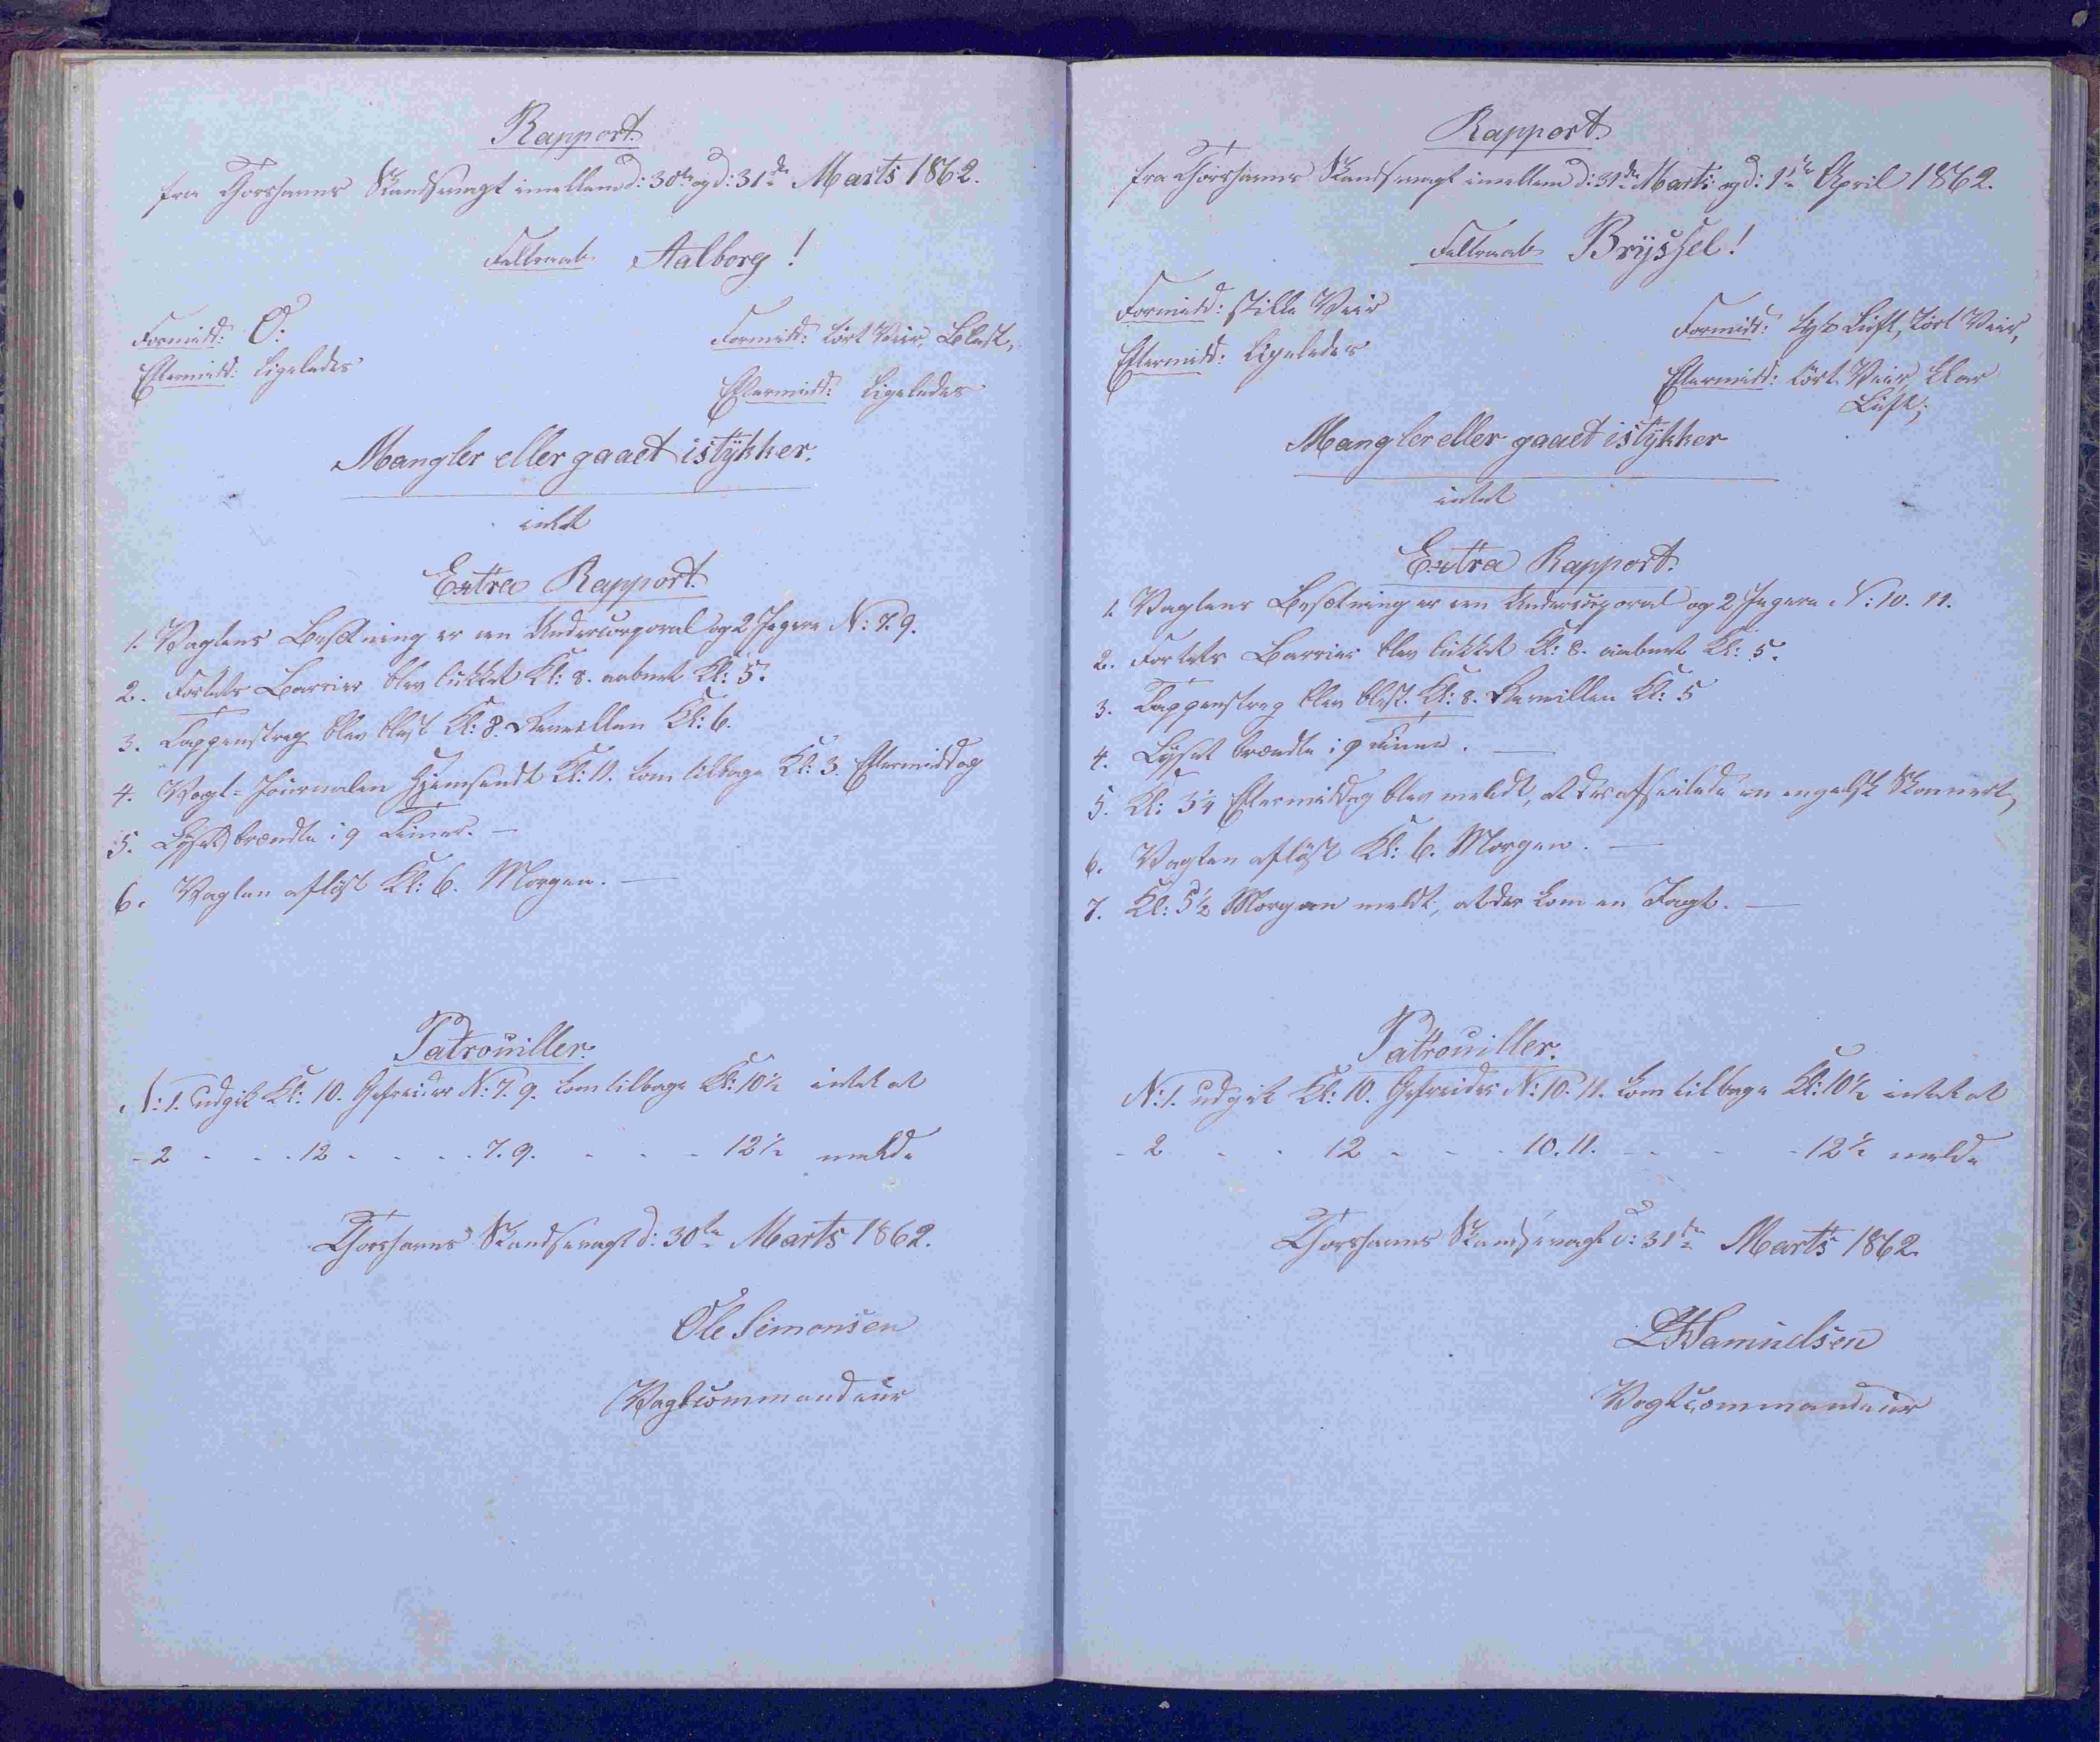 Rapport.
fra Thorshavns Skandsevagt imellem d: 30te og d: 31te Marts 1862.
Feltraab Aalborg!
Formidd: O:
Eftermidd: ligeledes
Formidd: tört Veir, Blæst,
Eftermidd: ligeledes
Mangler eller gaaet istÿkker.
intet
Extra Rapport.
1. Vagtens Besætning er een Undercorporal og 2 Jegere N: 7. 9.
2. Fortets Barrier blev lukket Kl: 8. aabnet Kl: 5.
3. Tappenstreg blev blæst Kl: 8. Reveillen Kl: 6.
4. Vagt-Journalen Hjemsendt Kl: 11. kom tilbage Kl: 3. Eftermiddag
5. Lyset brændte i 9 Timer. —
6. Vagten aflöst Kl: 6. Morgen. —
Patrouiller.
N: 1. udgik Kl: 10. Gefreider N: 7. 9. kom tilbage Kl: 10½ intet at
- 2 - - - 12 - - - - 7. 9. - - - 12½ melde
Thorshavns Skandsevagt d: 30te Marts 1862.
Ole Simonsen
Vagtcommandeur
Rapport.
fra Thorshavns Skandsevagt imellem d: 31te Marts og d: 1ste April 1862.
Feltraab Brÿssel!
Formidd: stille Veir
Eftermidd: ligeledes
Formidd: tyk Luft, tört Veir,
Eftermidd: tört Veir, klar
Luft,
Mangler eller gaaet istÿkker
intet
Extra Rapport.
1. Vagtens Besætning er een Undercorporal og 2 Jegere N: 10. 11.
2. Fortets Barrier blev lukket Kl: 8. aabnet Kl: 5.
3. Tappenstreg blev blæst Kl: 8. Reveillen Kl: 5
4. Lÿset brændte i 9 Timer. —
5. Kl: 3¼ Eftermiddag blev meldt, at der afseilede en engelsk Skonnert,
6. Vagten aflöst Kl: 6. Morgen. —
7. Kl: 5½ Morgen meldt, at der kom en Jagt. —
Patrouiller.
N: 1. udgik Kl: 10. Gefreider N: 10. 11. kom tilbage Kl: 10½ intet at
- 2 - - 12 - - - 10. 11. - - - - 12½ melde
Thorshavns Skandsevagt d: 31te Marts 1862.
Samuelsen
Vagtcommandeur